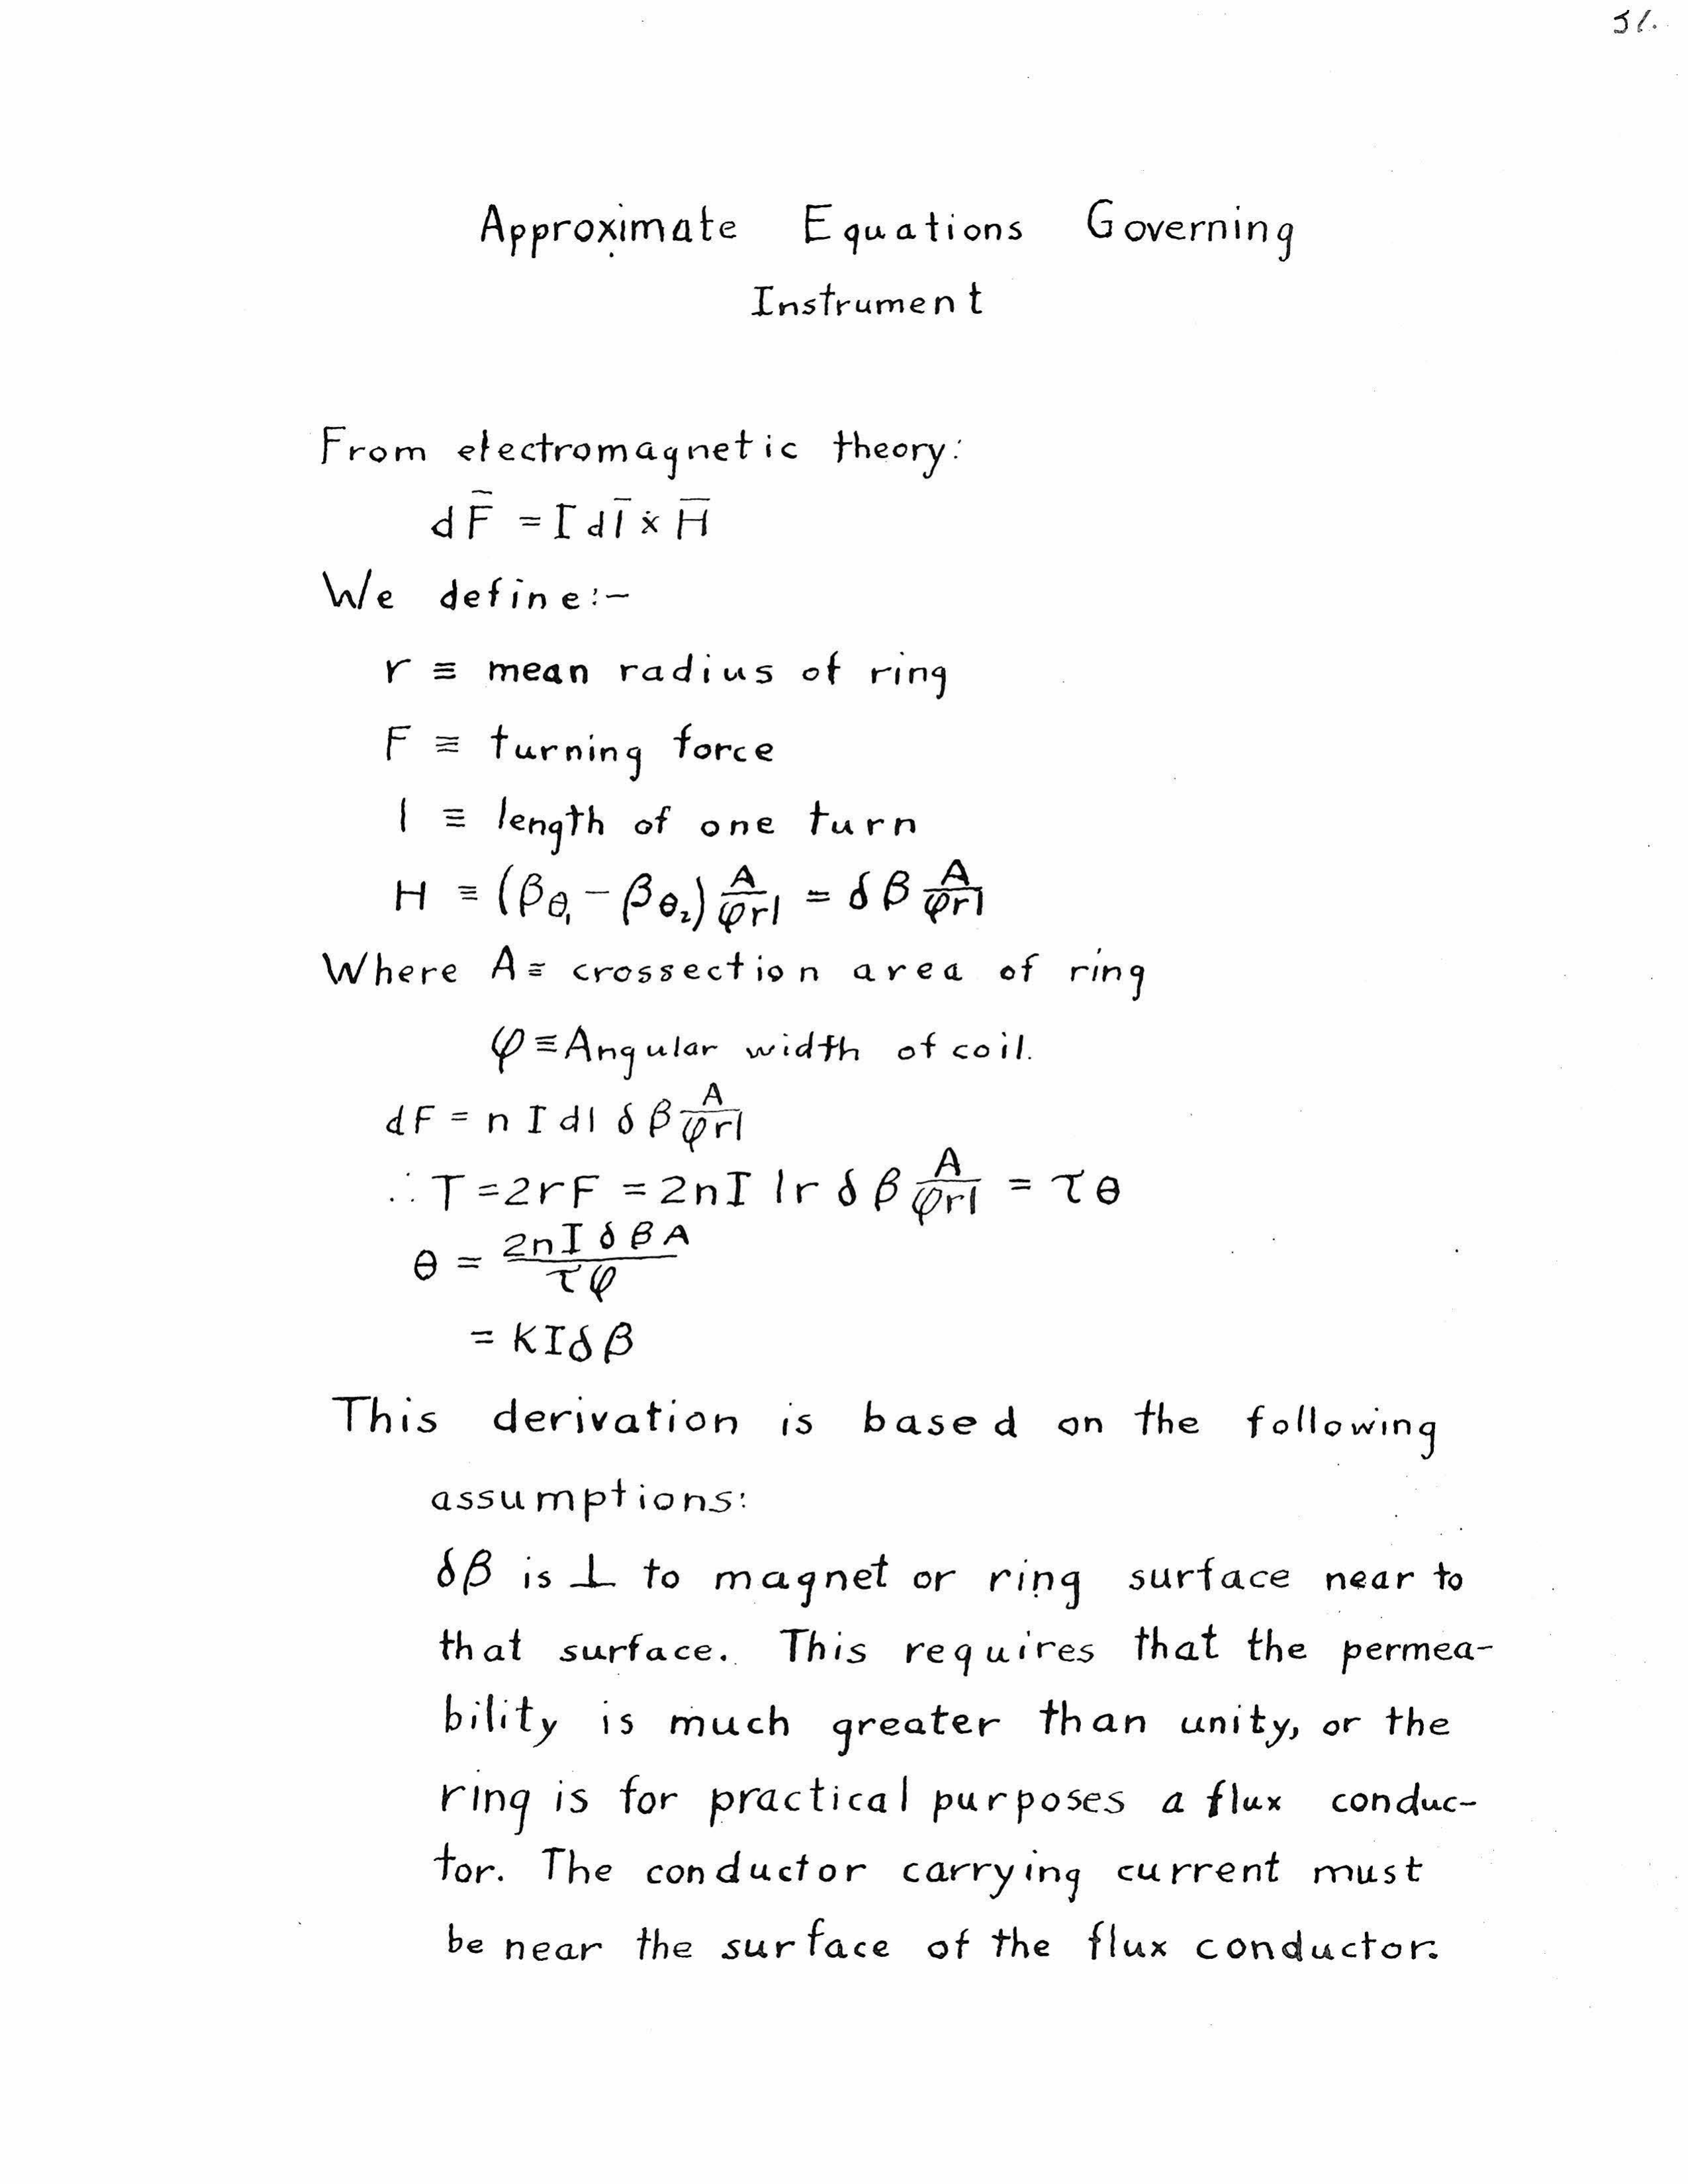 31.
Approximate Equations Governing
Instrument
From electromagnetic theory:
dF̄ = I dl̄ × H̄
We define:-
r ≡ mean radius of ring
F ≡ turning force
l ≡ length of one turn
H ≡ (βθ₁ - βθ₂) A/φrl = δβ A/φrl
Where A ≡ crossection area of ring
φ ≡ Angular width of coil.
dF = n I dl δβ A/φrl
∴ T = 2rF = 2nI lr δβ A/φrl = τθ
θ = 2nIδβA/τφ
= KIδβ
This derivation is based on the following
assumptions:
δβ is ⊥ to magnet or ring surface near to
that surface. This requires that the permea-
bility is much greater than unity, or the
ring is for practical purposes a flux conduc-
tor. The conductor carrying current must
be near the surface of the flux conductor.